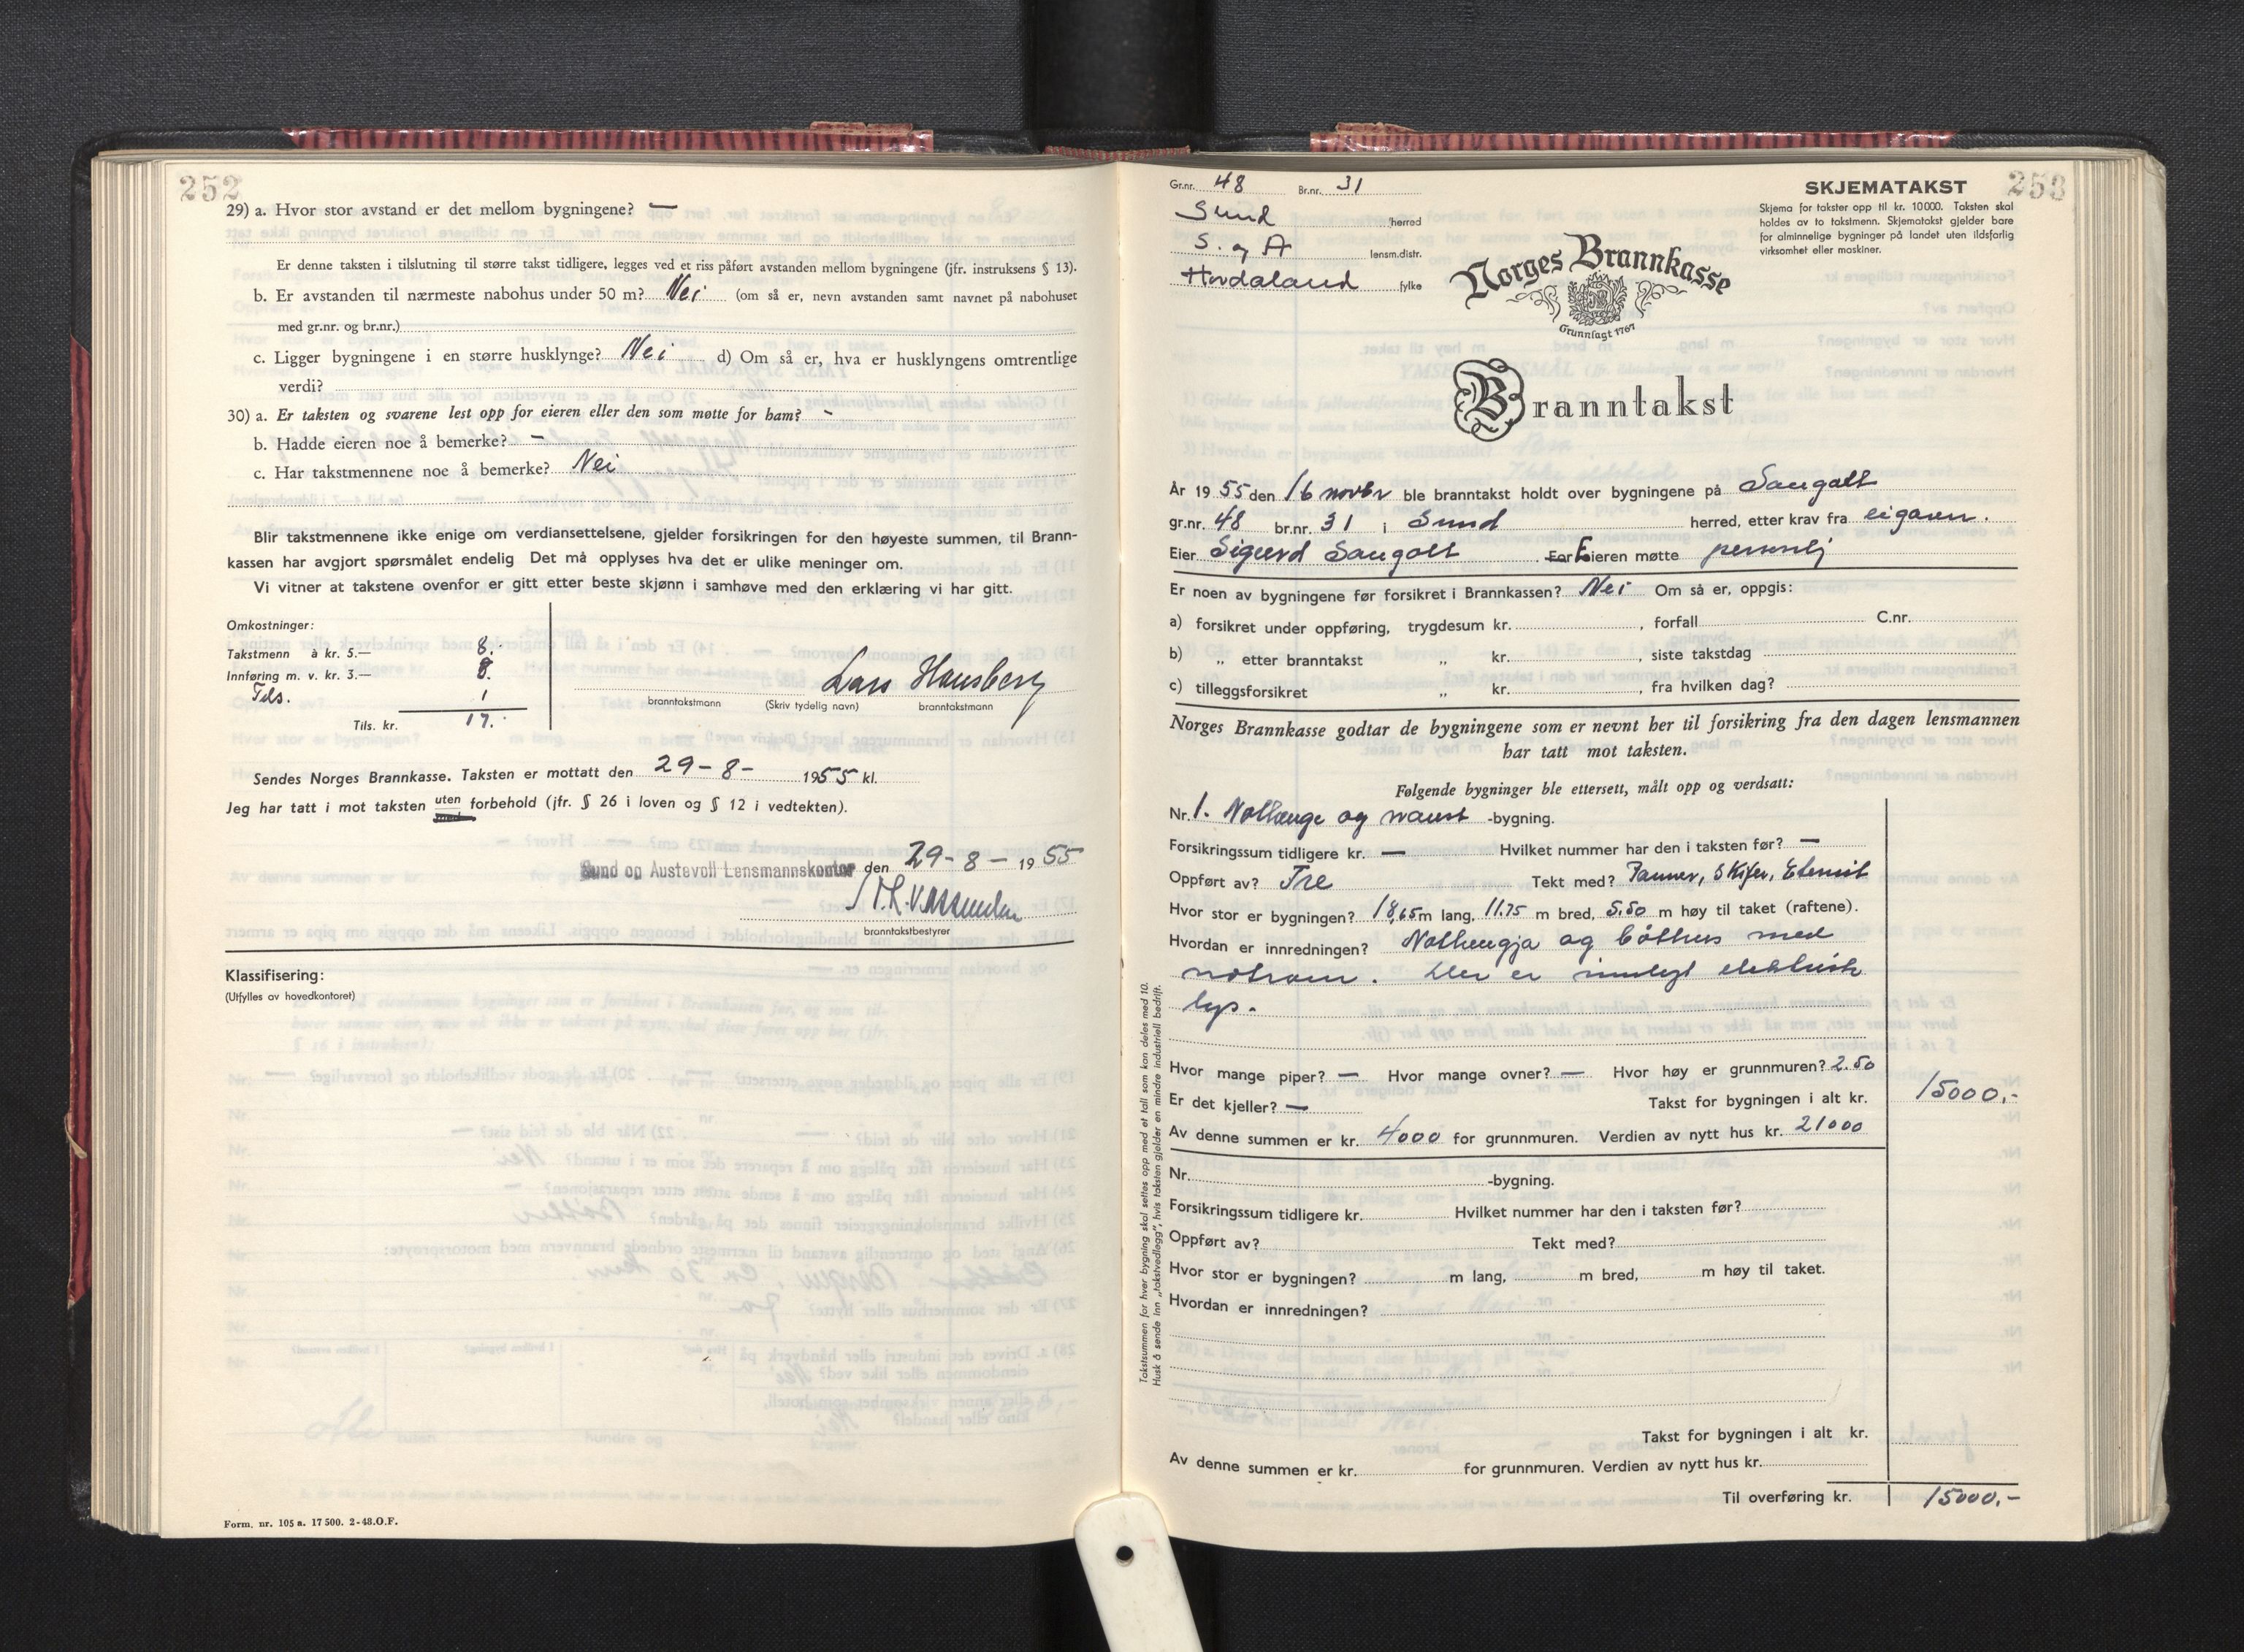 252
29) a. Hvor stor avstand er det mellom bygningene? —
Er denne taksten i tilslutning til større takst tidligere, legges ved et riss påført avstanden mellom bygningene (jfr. instruksens § 13).
b. Er avstanden til nærmeste nabohus under 50 m? Nei (om så er, nevn avstanden samt navnet på nabohuset
med gr.nr. og br.nr.)
c. Ligger bygningene i en større husklynge? Nei d) Om så er, hva er husklyngens omtrentlige
verdi?
30) a. Er taksten og svarene lest opp for eieren eller den som møtte for ham? -
b. Hadde eieren noe å bemerke? —
c. Har takstmennene noe å bemerke? Nei
Blir takstmennene ikke enige om verdiansettelsene, gjelder forsikringen for den høyeste summen, til Brann-
kassen har avgjort spørsmålet endelig Det må opplyses hva det er ulike meninger om.
Vi vitner at takstene ovenfor er gitt etter beste skjønn i samhøve med den erklæring vi har gitt.
Omkostninger:
Takstmenn à kr. 5.— 8.
Innføring m. v. kr. 3.— 8.
Tels. 1
Tils. kr. 17.
Lars Hausberg
branntakstmann (Skriv tydelig navn) branntakstmann
Sendes Norges Brannkasse. Taksten er mottatt den 29-8- 1955 kl.
Jeg har tatt i mot taksten uten forbehold (jfr. § 26 i loven og § 12 i vedtekten).
Sund og Austevoll Lensmannskontor den 29-8-1955
branntakstbestyrer
Klassifisering:
(Utfylles av hovedkontoret)
Form. nr. 105 a. 17 500. 2-48.O.F.
253
Gr.nr. 48 Br.nr. 31
Sund herred
S. og A lensm.distr.
Hordaland fylke
SKJEMATAKST
Skjema for takster opp til kr. 10000. Taksten skal
holdes av to takstmenn. Skjematakst gjelder bare
for alminnelige bygninger på landet uten ildsfarlig
virksomhet eller maskiner.
Norges Brannkasse
Grunnlagt 1767
Branntakst
År 1955 den 16 novbr ble branntakst holdt over bygningene på Sangolt
gr.nr. 48 br.nr. 31 i Sund herred, etter krav fra eigaren.
Eier Sigurd Sangolt For Eieren møtte personlig
Er noen av bygningene før forsikret i Brannkassen? Nei Om så er, oppgis:
a) forsikret under oppføring, trygdesum kr. , forfall C.nr.
b) „ etter branntakst „ kr. , siste takstdag
c) tilleggsforsikret „ kr. , fra hvilken dag?
Norges Brannkasse godtar de bygningene som er nevnt her til forsikring fra den dagen lensmannen
har tatt mot taksten.
Følgende bygninger ble ettersett, målt opp og verdsatt:
Nr. 1. Nothenge og naust -bygning.
Forsikringssum tidligere kr. — Hvilket nummer har den i taksten før? —
Oppført av? Tre Tekt med? Panner, Skifer, Eternit
Hvor stor er bygningen? 18,65 m lang, 11.75 m bred, 5.50 m høy til taket (raftene).
Hvordan er innredningen? Nothengja og båthus med
notrom. Der er innlagt elektrisk
lys.
Hvor mange piper? — Hvor mange ovner? — Hvor høy er grunnmuren? 2.50
Er det kjeller? — Takst for bygningen i alt kr. 15000,-
Av denne summen er kr. 4000 for grunnmuren. Verdien av nytt hus kr. 21000
Nr. -bygning.
Forsikringssum tidligere kr. Hvilket nummer har den i taksten før?
Oppført av? Tekt med?
Hvor stor er bygningen? m lang, m bred, m høy til taket.
Hvordan er innredningen?
Takst for bygningen i alt kr.
Av denne summen er kr. for grunnmuren. Verdien av nytt hus kr.
Til overføring kr. 15000.-
Takstsummen for hver bygning skal settes opp med et tall som kan deles med 10.
Husk å sende inn „takstvedlegg", hvis taksten gjelder en mindre industriell bedrift.